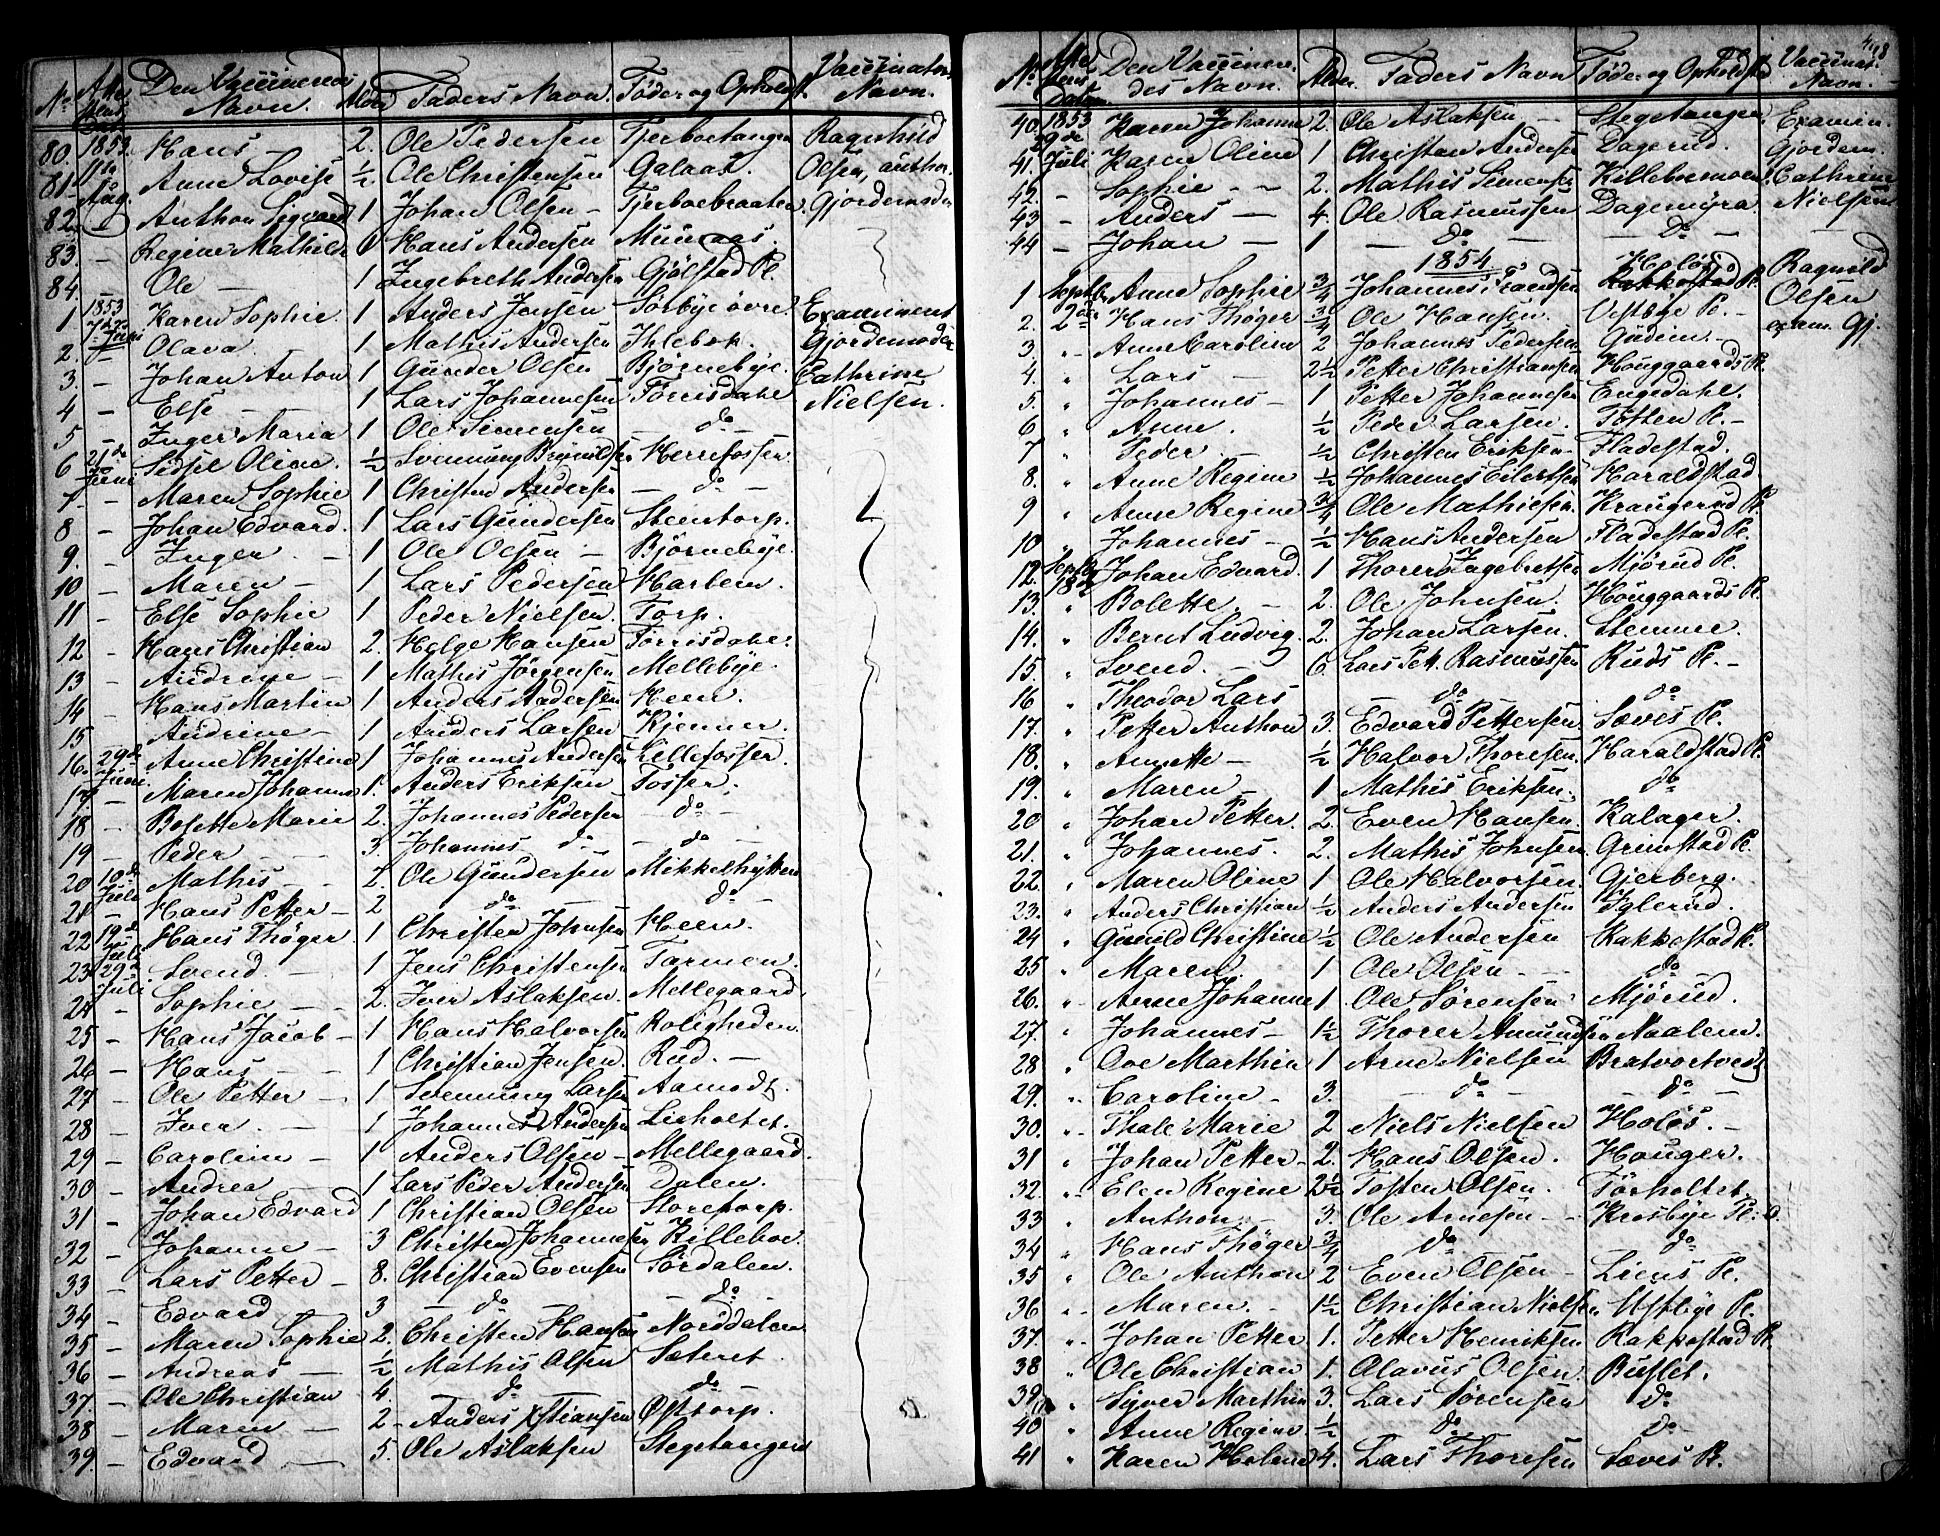 No. Attestens Datum Den Vaccineredes Navn. Alder Faders Navn. Føde- og Opholdst. Vaccinators Navn.
80. 1853. Hans — 2. Ole Pedersen Tjerboetangen Ragnhild
81. 11te Anne Lovise ½ Ole Christensen Galaas. Olsen, author.
82. Aug. Anthon Sigvard 1 Johan Olsen — Tjerboebraaten. Gjordemoder
83. — Regine Mathilde Hans Andersen
84. — Ole — 1 Ingebreth Andersen Gjølstad Pl.
1 1853 Karen Sophie. 1 Anders Jensen Sørbye øvre. Examineret
2. Juni Olava — 1 Mathis Andersen Ihlebek. Gjordemoder
3. — Johan Anton 1 Gunder Olsen Bjørnebye. Cathrine
4 — Else — 1 Lars Johannesen Torrisdahl Nielsen.
5 — Inger Maria 1 Ole Simensen do
6 21de Juni Sidsel Oline. ½ Svenning Herrefosser.
7 — Maren Sophie 1 Christen Andersen — do —
8 — Johan Edvard. 1 Lars Gundersen Steentorp.
9. — Inger. — 1 Ole Olsen — Bjørnebye.
10 — Maren — 1 Lars Pedersen
11 — Else Sophie 1 Peder Nielsen. Torp.
12 — Hans Christian 2. Helge Hansen Torrisdahl.
13 — Andrine — 1 Mathis Jørgensen Mellebye.
14 — Hans Martin 1 Anders Andersen Heen.
15 — Andrine — 1 Anders Larsen Kjenner.
16. 29de Juni. Anne Christine 1 Johannes Andersen Lillefosser.
17 — Maren Johanne 1. Anders Eriksen Fosser.
18 — Bolette Marie 2. Johannes Pedersen — do —
19 — Peder — 3. Johannes do — do —
20 10de Juli Mathis — 2. Ole Gundersen
21 — Hans Petter — 2 do — do
22 19de Juli Hans Thøger. 1 Christen Johnsen Heen.
23 29de Juli Svend. — 1 Jens Christensen Tarmen.
24 — Sophie — 2. Iver Aslaksen. Mellegaard.
25 — Hans Jacob — 1 Hans Halvorsen Roligheden.
26 — Hans — 1 Christian Jensen. Rud. —
27 — Ole Petter — 1 Svenning Larsen Aamodt.
28 — Iver. — 1 Johannes Andersen Lieholtet.
29 — Caroline — 1 Anders Olsen — Mellegaard.
30 — Andrea — 1 Lars Peder Andersen Dalen.
31 — Johan Edvard 1 Christian Olsen Storetorp.
32 — Johanne — 3 Christen Johannesen Killeboe.
33 — Lars Petter — 8. Christian Evensen Sørdalen.
34 — Edvard — 3 — do — — do —
35 — Maren Sophie 2. Christen Hansen Norddalen
36 — Andreas — ½ Mathis Olsen Sæteret.
37. — Ole Christian 4. do do
38 — Maren — 2 — Anders Xstiansen Østtorp.
39. — Edvard — 5. Ole Aslaksen Stegetangen
448
No. Attestens Datum Den Vaccineredes Navn. Alder. Faders Navn Føde- og Opholdst. Vaccinat. Navn.
40. 1853 Karen Johanne 2. Ole Aslaksen — Stegetangen Examin.
41. Juli Karen Oline 1 Christian Andersen Dagerud. Gjordem.
42. — Sophie — 2. Mathis Simensen Killeboemoen. Cathrine
43 — Anders — 4. Ole Rasmussen Dagemyra. Nielsen
44 — Johan — 1 — do — do
1854
1 Septbr. Anne Sophie ¾ Johannes Holøs Rakkestad Pl. Ragnild
2. 2den Hans Thøger ¾ Ole Hansen. Vestbye Pl. — Olsen
3. „ Anne Caroline 2 Johannes Pedersen Gudim. — exam. Gj.
4. „ Lars — 2½ Petter Christiansen Houggaards Pl.
5. „ Johannes — 1 Petter Johannesen Engedahl.
6 „ Anne. ½ Peder Larsen. Toften Pl. —
7 „ Peder — ½ Christen Eriksen — Fladestad.
8. „ Anne Regine ½ Johannes Eilertsen Haraldstad
9 „ Anne Regine ¾ Ole Mathiesen. Krangerud Pl.
10 „ Johannes — ½ Hans Andersen Fladestad Pl.
12. Septbr 18de Johan Edvard. 1 Thorer Ingebretsen Mjørud Pl.
13. „ Bolette. — 2. Ole Johnsen. Houggaards Pl.
14. „ Bernt Ludvig. 2. Johan Larsen. Stemme.
15. „ Svend. — 6 Lars Pet. Rasmussen Ruds Pl. —
16 „ Theodor Lars do do
17. „ Petter Anthon 3. Edvard Pettersen Sæves Pl.
18. „ Annette — ½ Halvor Thoresen. Haraldstad Pl.
19. „ Maren — 1 Mathis Eriksen. do
20 „ Johan Petter. 2. Even Hansen. Kalager.
21. „ Johannes. 2. Mathis Johnsen. Grimstad Pl.
22. „ Maren Oline 1 Ole Halvorsen. Gjerberg.
23. „ Anders Christian ½ Anders Andersen Iglerud.
24 „ Gunild Christine ½ Ole Andersen Rakkestad Pl.
25 „ Maren. 1 Ole Olsen — do
26. „ Anne Johanne 1. Ole Sørensen Mjørud.
27. „ Johannes — 1½ Thorer Amundsen Naalem.
28 „ Ove Marthin 1 Arne Nielsen Bratvortvedt
29. „ Caroline — 3. — do — — do —
30. „ Thale Marie 2 Niels Nielsen Holøs. —
31 „ Johan Petter — 2. Hans Olsen. Houger.
32. „ Elen Regine 2½ Tosten Olsen. Torholtet.
33 „ Anthon. — 3. Ole Arnesen — Krosbye Pl.
34 „ Hans Thøger ¾ do do
35 „ Ole Anthon 2 Even Olsen — Liens Pl.
36 „ Maren. — 1½ Christian Nielsen Vestbye Pl.
37. „ Johan Petter 1. Petter Henriksen Rakkestad Pl.
38 „ Ole Christian 1. Olavus Olsen. Buslet.
39 „ Syver Marthin 3. Lars Sørensen do
40 „ Anne Regine. ½ do do
41 „ Karen Helene 4. Lars Thoresen Sæves Pl.